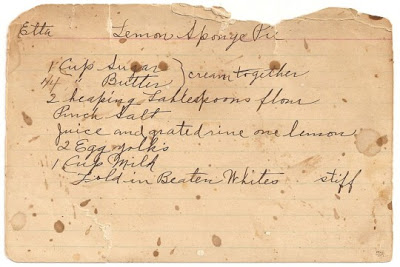 Etta Lemon Sponge Pie
1 Cup Sugar } cream together
1/4 " Butter
2 heaping Tablespoons flour
Pinch Salt
Juice and grated rine one lemon
2 Egg yolks
1 Cup Milk
Fold in Beaten Whites stiff